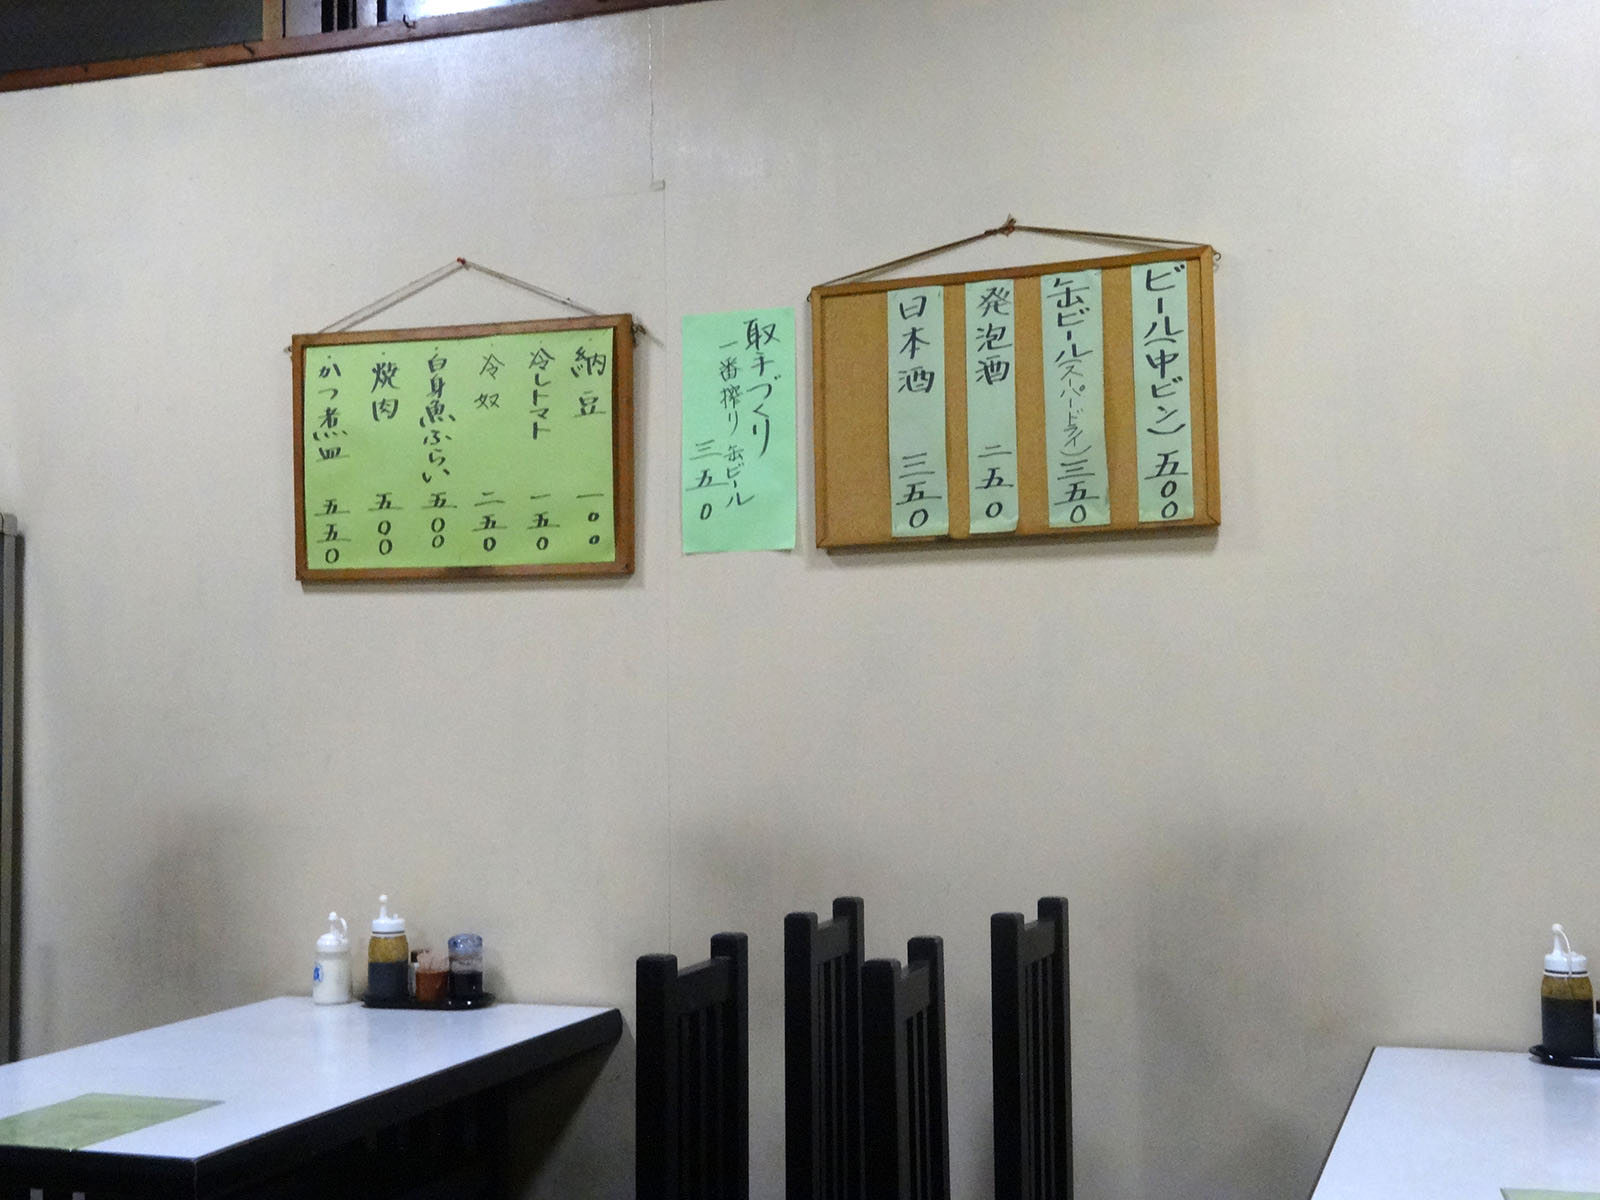 ビール(中ビン) 五00
缶ビール(スーパードライ) 三五0
発泡酒 二五0
日本酒 三五0
取手づくり
一番搾り 缶ビール
三五0
納豆 一00
冷しトマト 一五0
冷奴 二五0
白身魚ふらい 五00
焼肉 五00
かつ煮皿 五五0